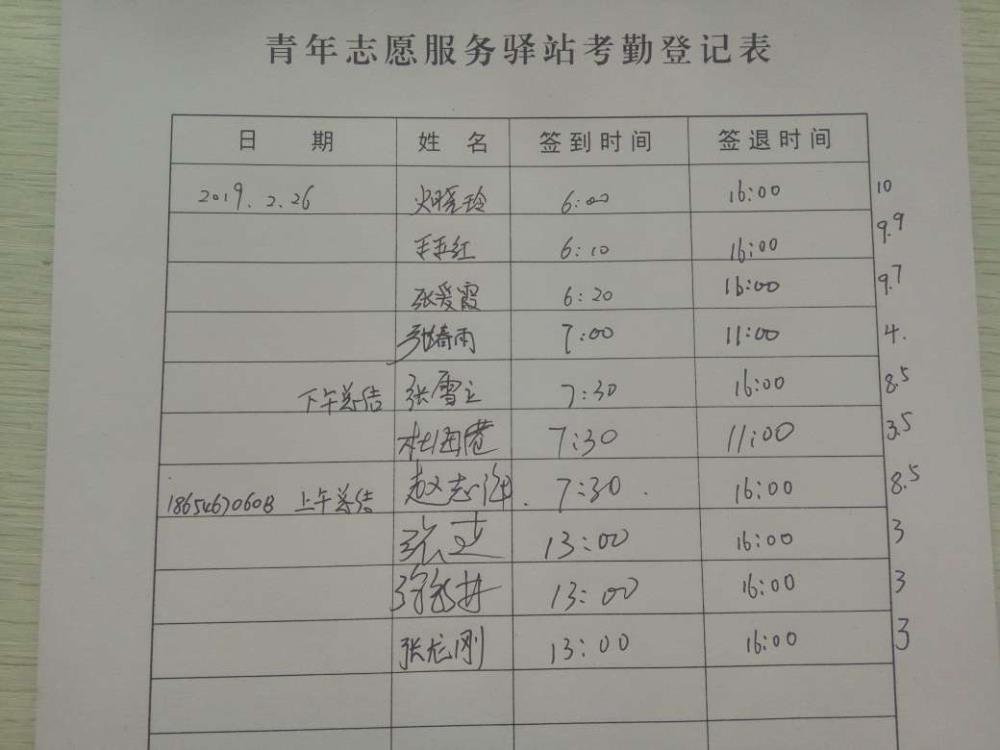 青年志愿服务驿站考勤登记表
日期 姓名 签到时间 签退时间
2019.2.26 晓玲 6:00 16:00 10
王亚红 6:10 16:00 9.9
张爱霞 6:20 16:00 9.7
张绮雨 7:00 11:00 4.
下午总结 张雪立 7:30 16:00 8.5
杜海港 7:30 11:00 3.5
18654670608 上午总结 赵志海. 7:30. 16:00 8.5
张 13:00 16:00 3
13:00 16:00 3
张龙刚 13:00 16:00 3